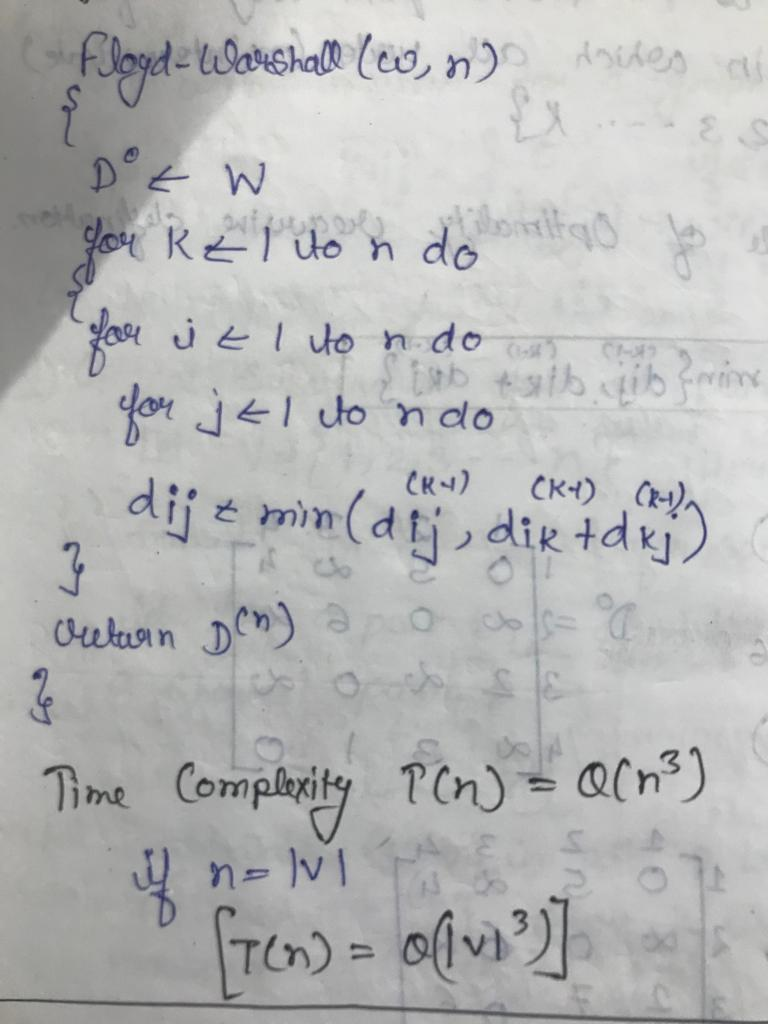 Floyd-Warshall (w, n)
{
D⁰ ← W
for K ← 1 to n do
{
for i ← 1 to n do
for j ← 1 to n do
dij ← min(dij^(K-1), dik^(K-1) + dkj^(K-1))
}
return D^(n)
}
Time Complexity T(n) = O(n³)
if n = |V|
[T(n) = O(|V|³)]